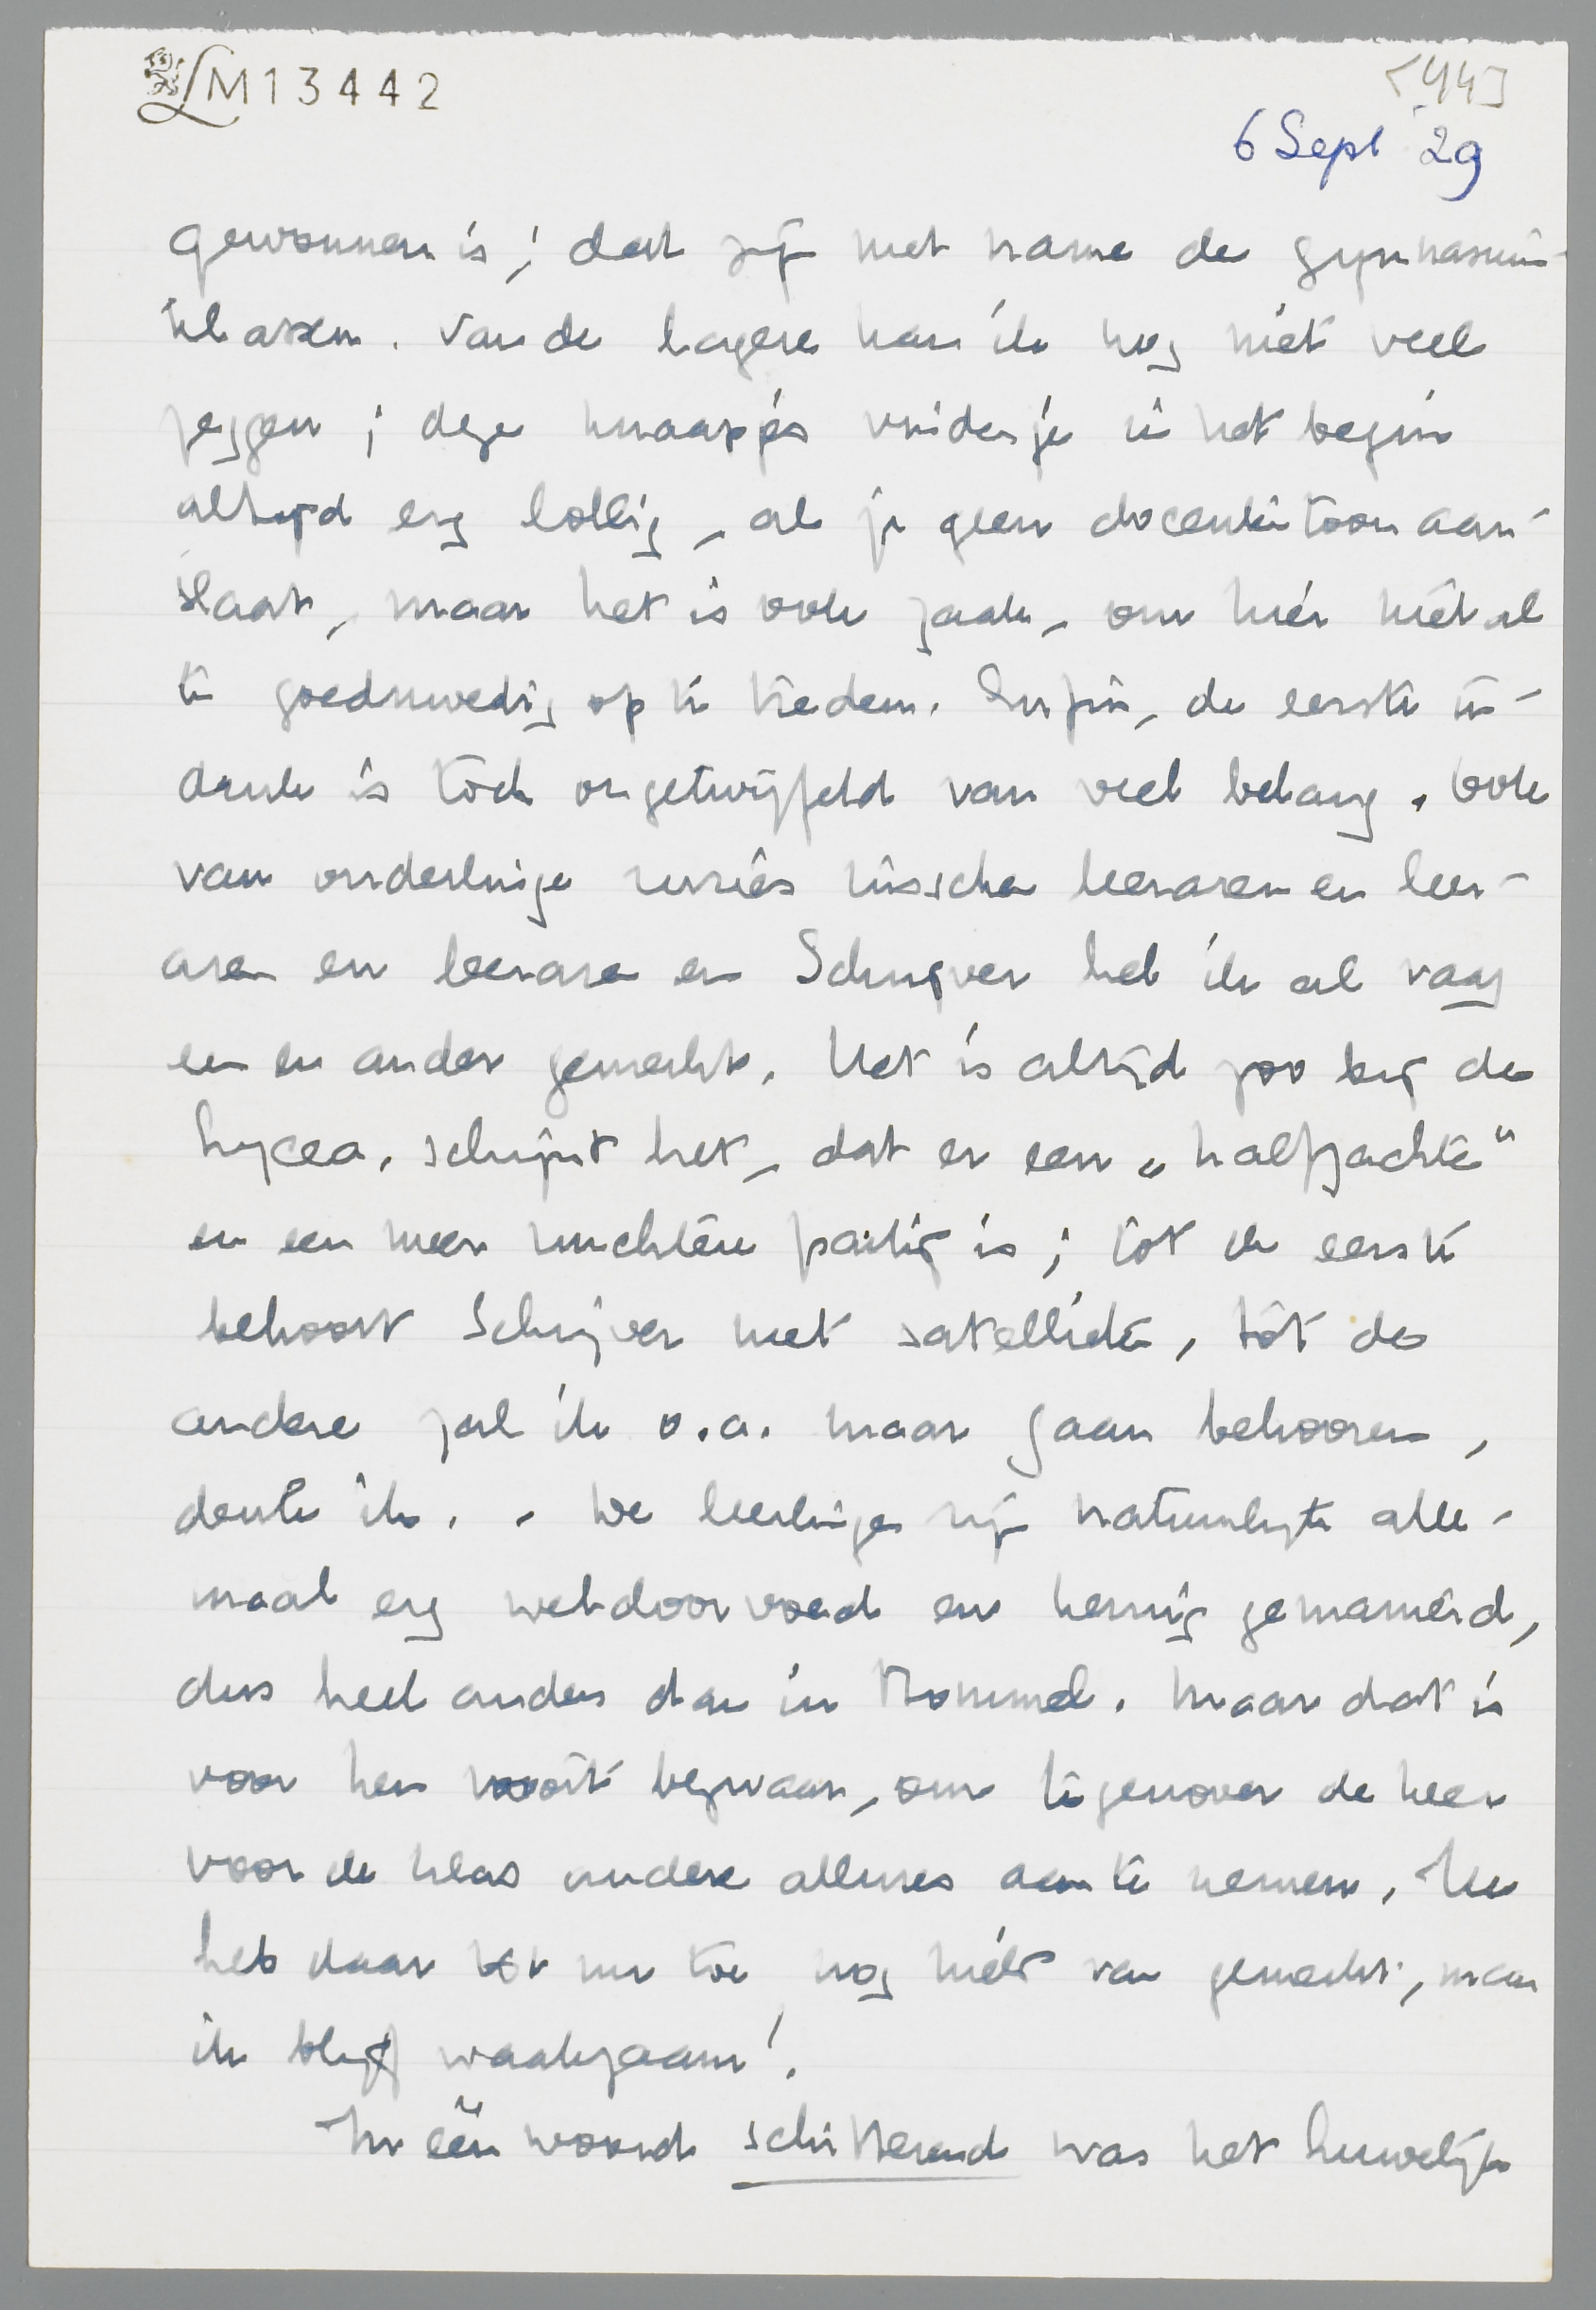 LM13442
[44]
6 Sept '29
gewonnen is; dat zijn met name de gymnasium-
klassen. Van de lagere kan ik nog niet veel
zeggen; deze knaapjes vinden je in het begin
altijd erg lollig, als je geen docententoon aan-
slaat, maar het is ook zaak, om hier niet al
te goedmoedig op te treden. Enfin, de eerste in-
druk is toch ongetwijfeld van veel belang. Ook
van onderlinge ruzies tusschen leeraren en leer-
aren en leeraren en Schrijver heb ik al vaag
een en ander gemerkt. Het is altijd zoo bij de
lycea, schijnt het, dat er een "halfzachte"
en een meer nuchtere partij is; tot de eerste
behoort Schrijver met satellieten, tot de
andere zal ik o.a. maar gaan behooren,
denk ik. - De leerlingen zijn natuurlijk alle-
maal erg weldoorvoed en keurig gemanierd,
dus heel anders dan in Bommel. Maar dat is
voor hen nooit bezwaar, om tegenover de heer
voor de klas andere allures aan te nemen. Ik
heb daar tot nu toe nog niets van gemerkt, maar
ik blijf waakzaam!
In één woord schitterend was het huwelijk